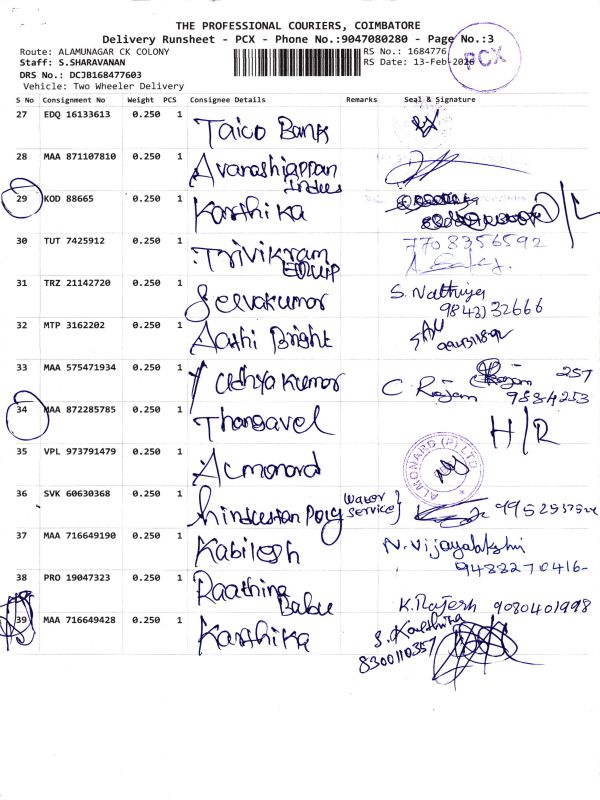 THE PROFESSIONAL COURIERS, COIMBATORE
Delivery Runsheet - PCX - Phone No.:9047080280 - Page No.:3
Route: ALAMUNAGAR CK COLONY
RS No.: 1684776
PCX
Staff: S.SHARAVANAN
RS Date: 13-Feb-2026
DRS No.: DCJB168477603
Vehicle: Two Wheeler Delivery
S No Consignment No Weight PCS Consignee Details Remarks Seal & Signature
27 EDQ 16133613 0.250 1 Taico Bank
28 MAA 871107810 0.250 1 Avanashiappan
Indus
29 KOD 88665 0.250 1 Karthika D/L
30 TUT 7425912 0.250 1 Trivikram 7708356592
Equip
31 TRZ 21142720 0.250 1 Selvakumar S. Nathiya
9843132666
32 MTP 3162202 0.250 1 Aathi Bright
33 MAA 575471934 0.250 1 Udhyakumar C. Rajam 257
9884253
34 MAA 872285785 0.250 1 Thangavel H/R
35 VPL 973791479 0.250 1 Almonard ALMONARD (P) LTD
36 SVK 60630368 0.250 1 Hindustan Poly water
service
37 MAA 716649190 0.250 1 Kabilesh N. Vijayalakshmi
9488270416-
38 PRO 19047323 0.250 1 Raathina
Babu K. Rajesh 9080401998
39 MAA 716649428 0.250 1 Karthika S. Karthika
8300110357